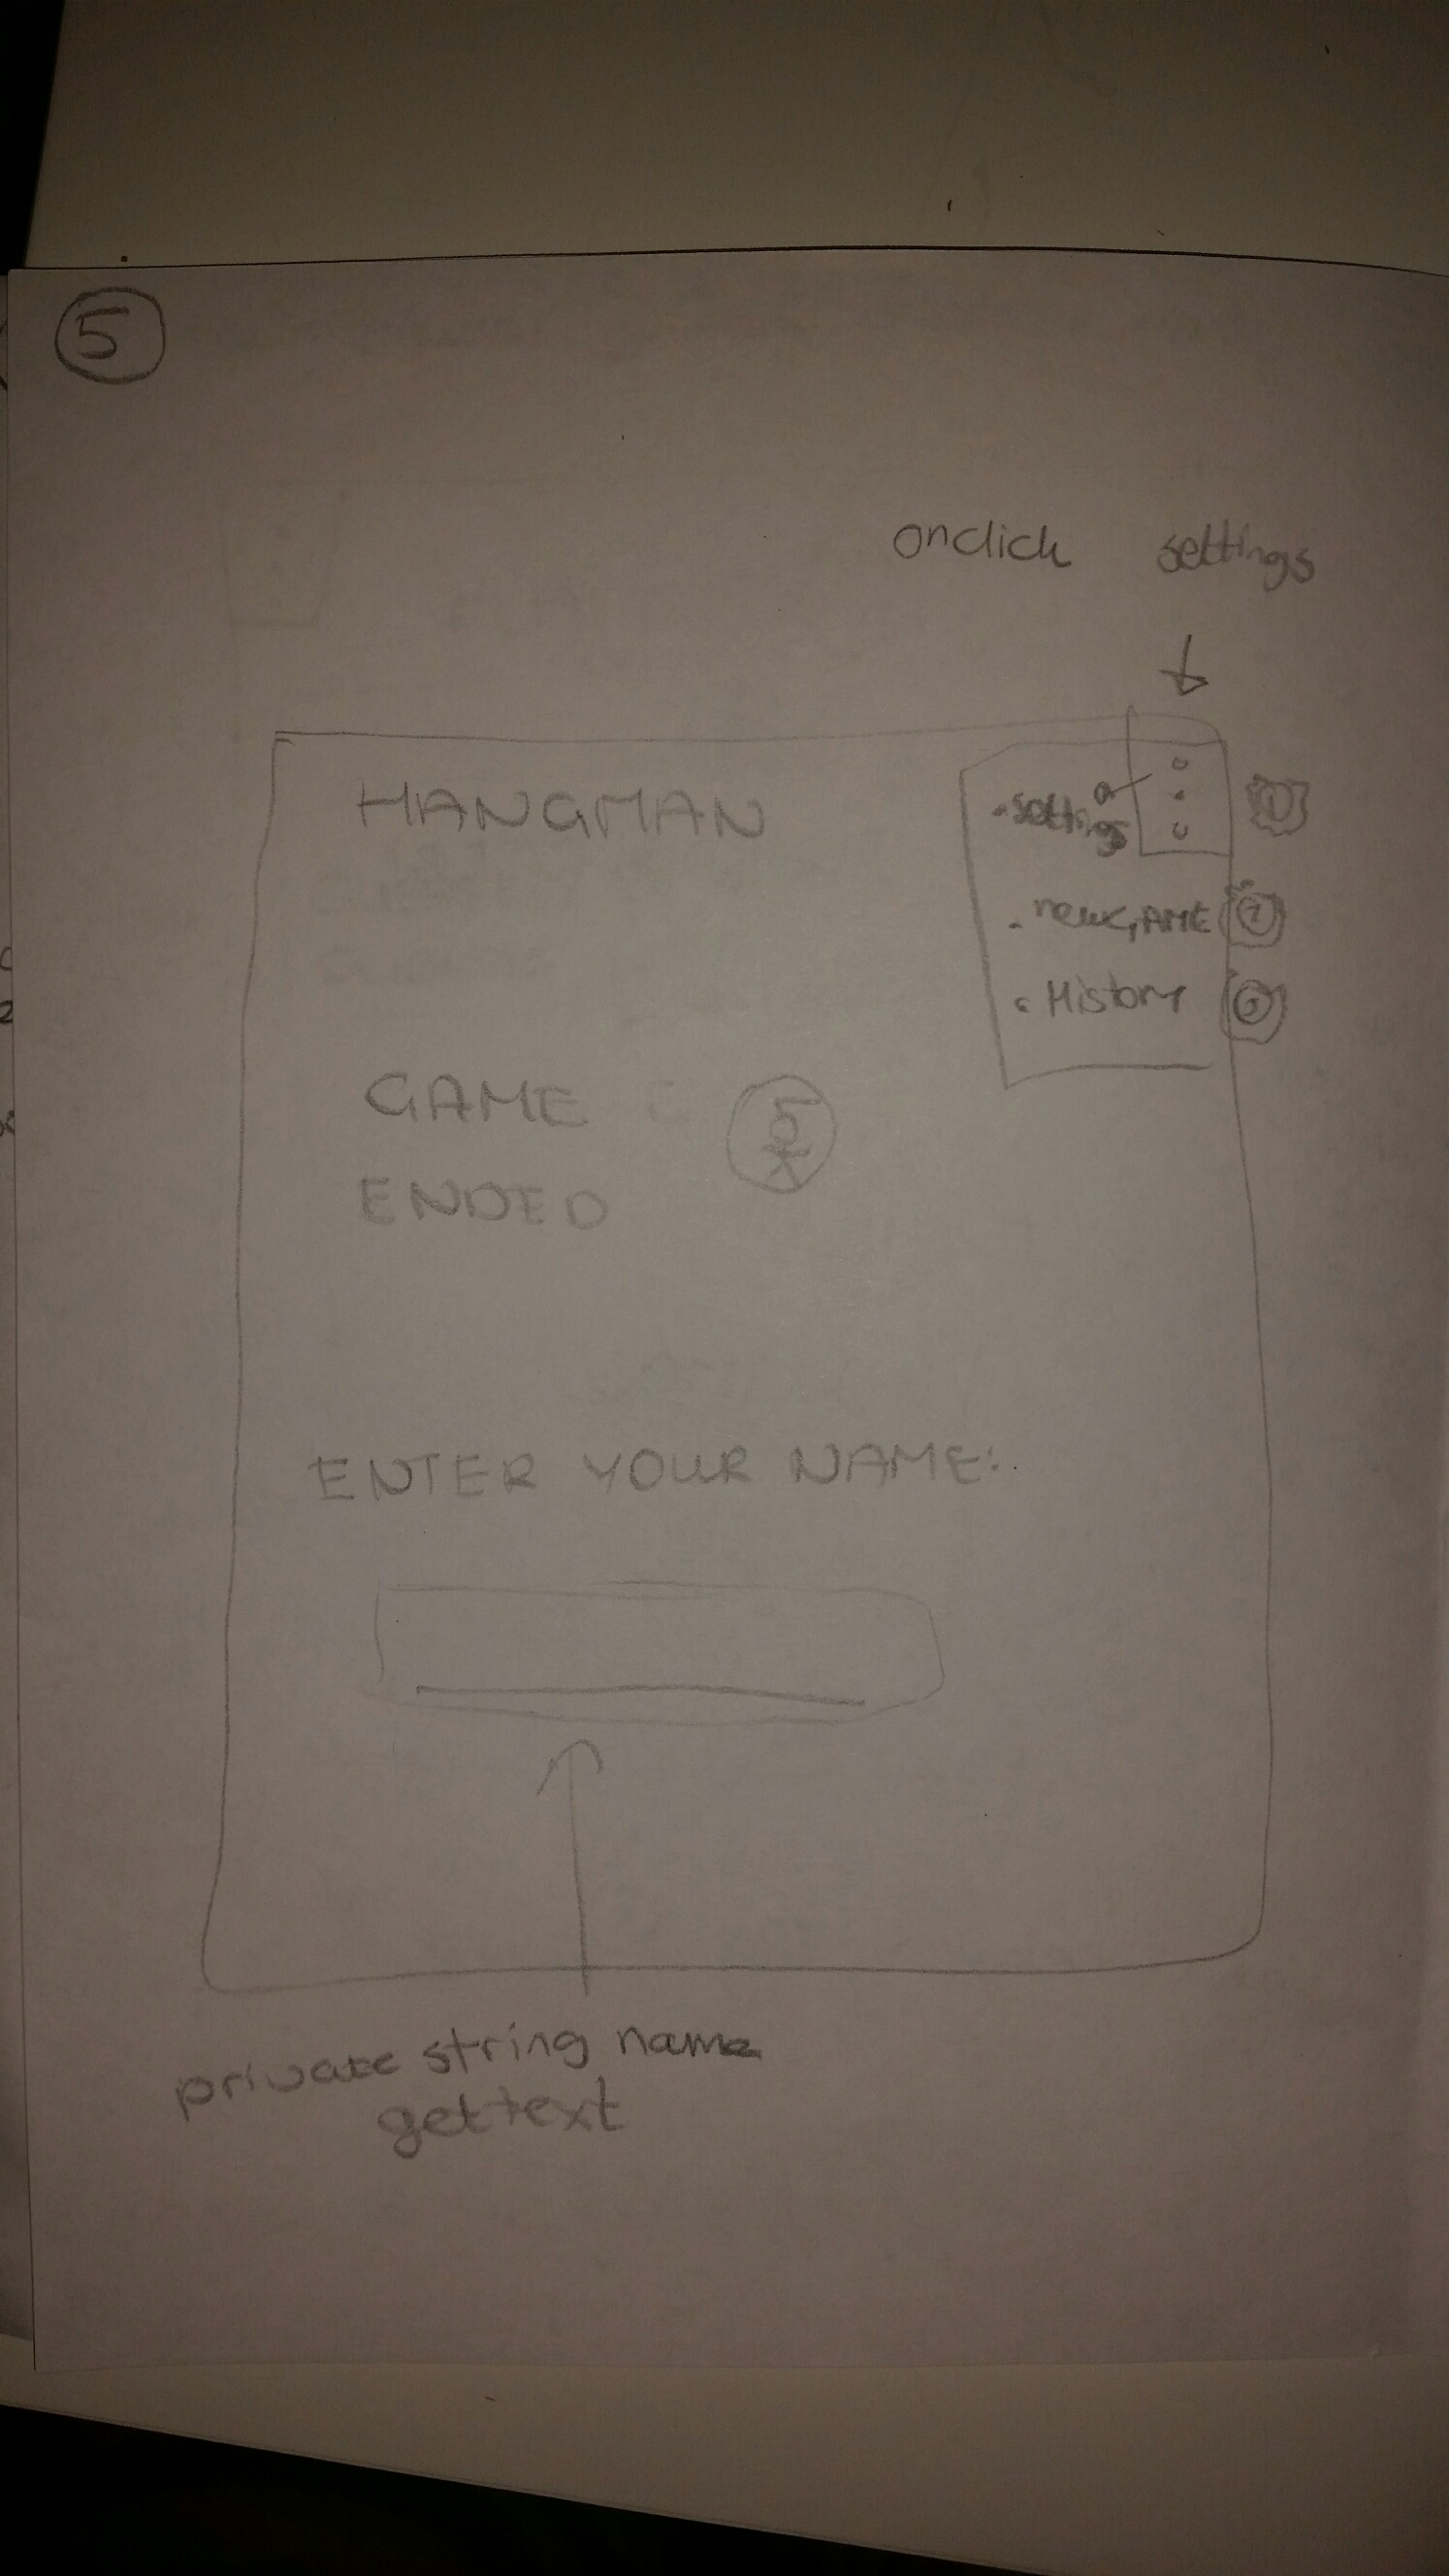 5
onclick settings
HANGMAN
• settings
• new GAME
• History
GAME
ENDED
5
ENTER YOUR NAME:
private string name
get text